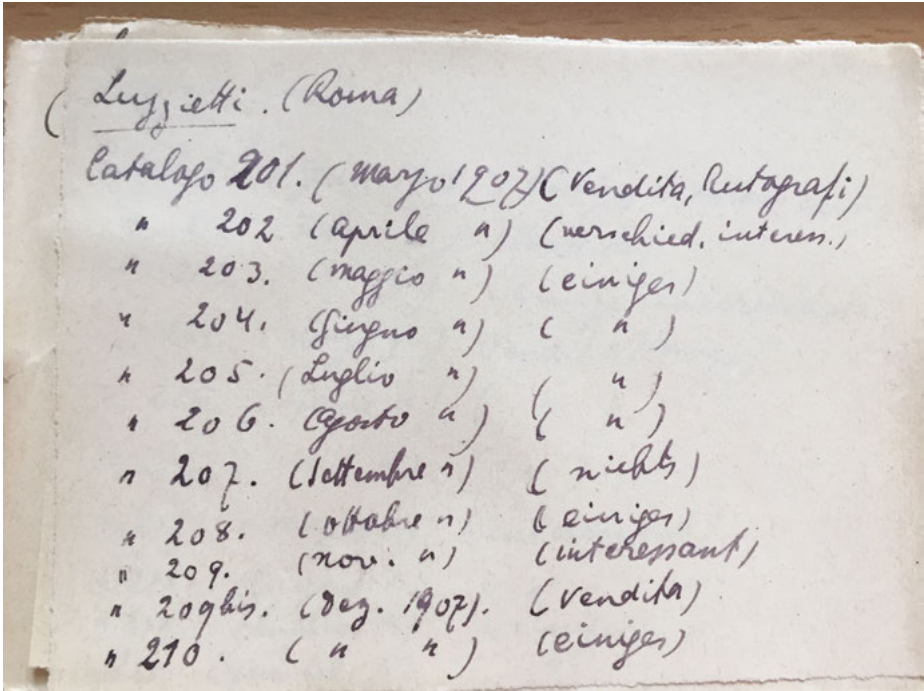 ( Luzzietti. (Roma)
Catalogo 201. (marzo 1907) (Vendita, Autografi)
" 202 (aprile ") (verschied. interess.)
" 203. (maggio ") (einiges)
" 204. (Giugno ") ( " )
" 205. (Luglio ") ( " )
" 206. Agosto ") ( " )
" 207. (Settembre ") (nichts)
" 208. (ottobre ") (einiges)
" 209. (nov. ") (interessant)
" 209bis. (Dez. 1907). (Vendita)
" 210. ( " " ) (einiges)